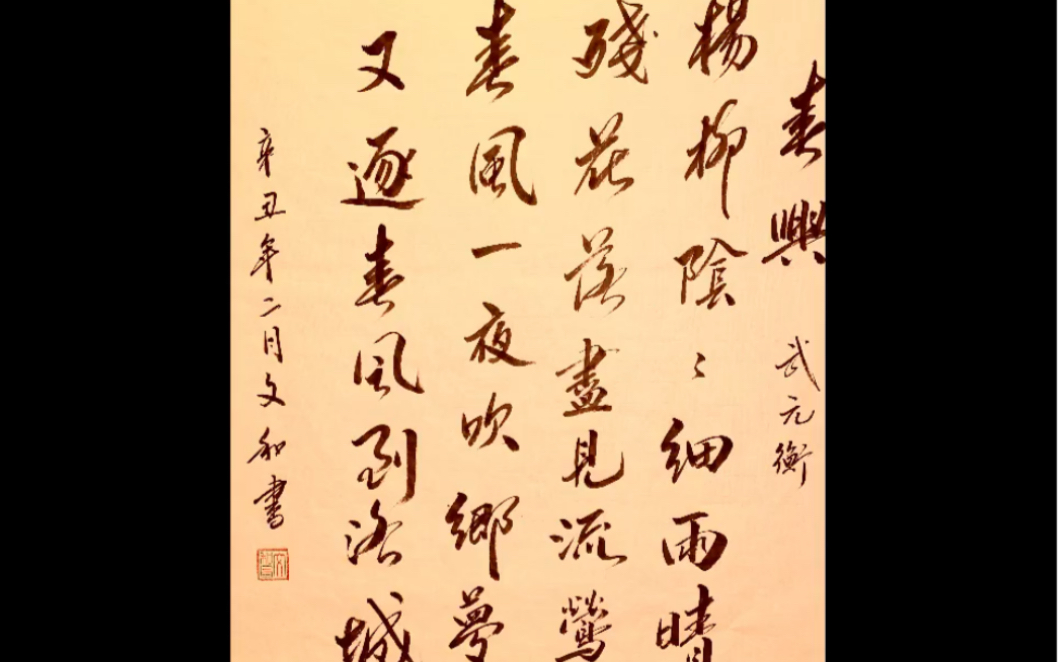 春興
武元衡
楊柳陰〻細雨晴
殘花落盡見流鶯
春風一夜吹鄉夢
又逐春風到洛城
辛丑年二月文和書